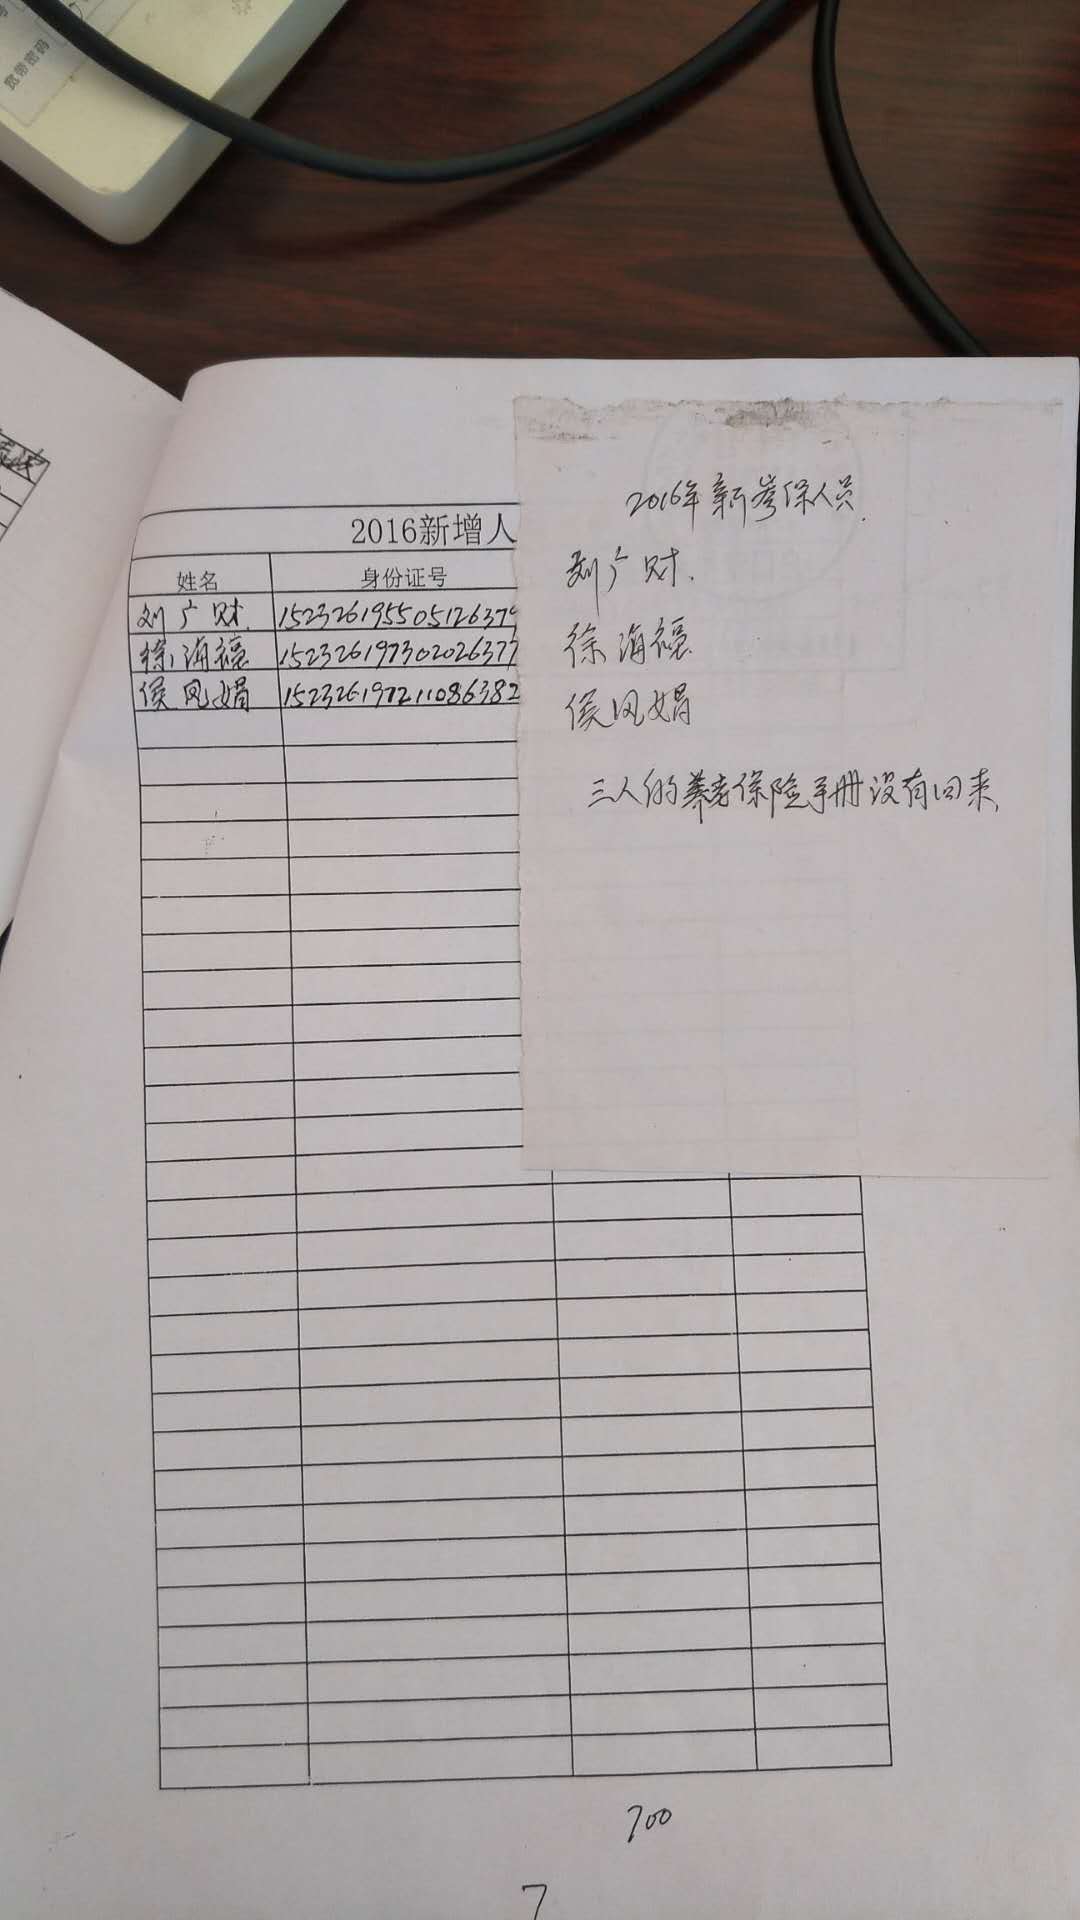 宽带密码
2016新增人
姓名 身份证号
刘广财 15232619550512637
徐海福 15232619730202637
侯凤娟 152326197211086382
2016年新参保人员
刘广财.
徐海福
侯凤娟
三人的养老保险手册没有回来
700
7